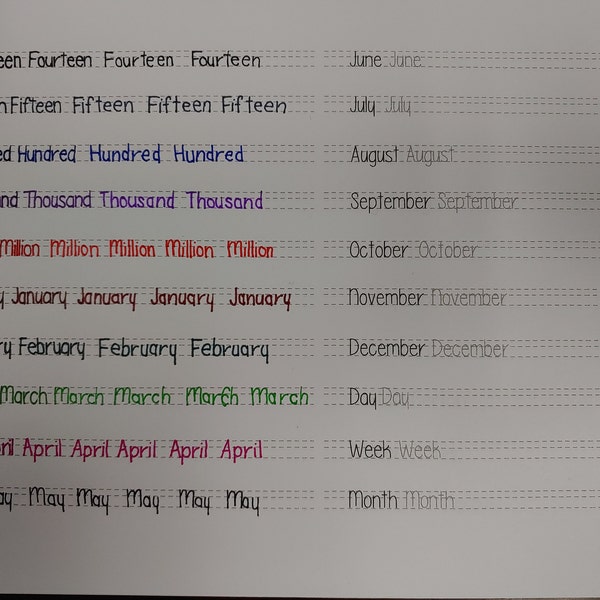 een Fourteen Fourteen Fourteen
n Fifteen Fifteen Fifteen Fifteen
ed Hundred Hundred Hundred
nd Thousand Thousand Thousand
Million Million Million Million Million
y January January January January
ry February February February
March March March March March
ril April April April April April
ay May May May May May
June June
July July
August August
September September
October October
November November
December December
Day Day
Week Week
Month Month